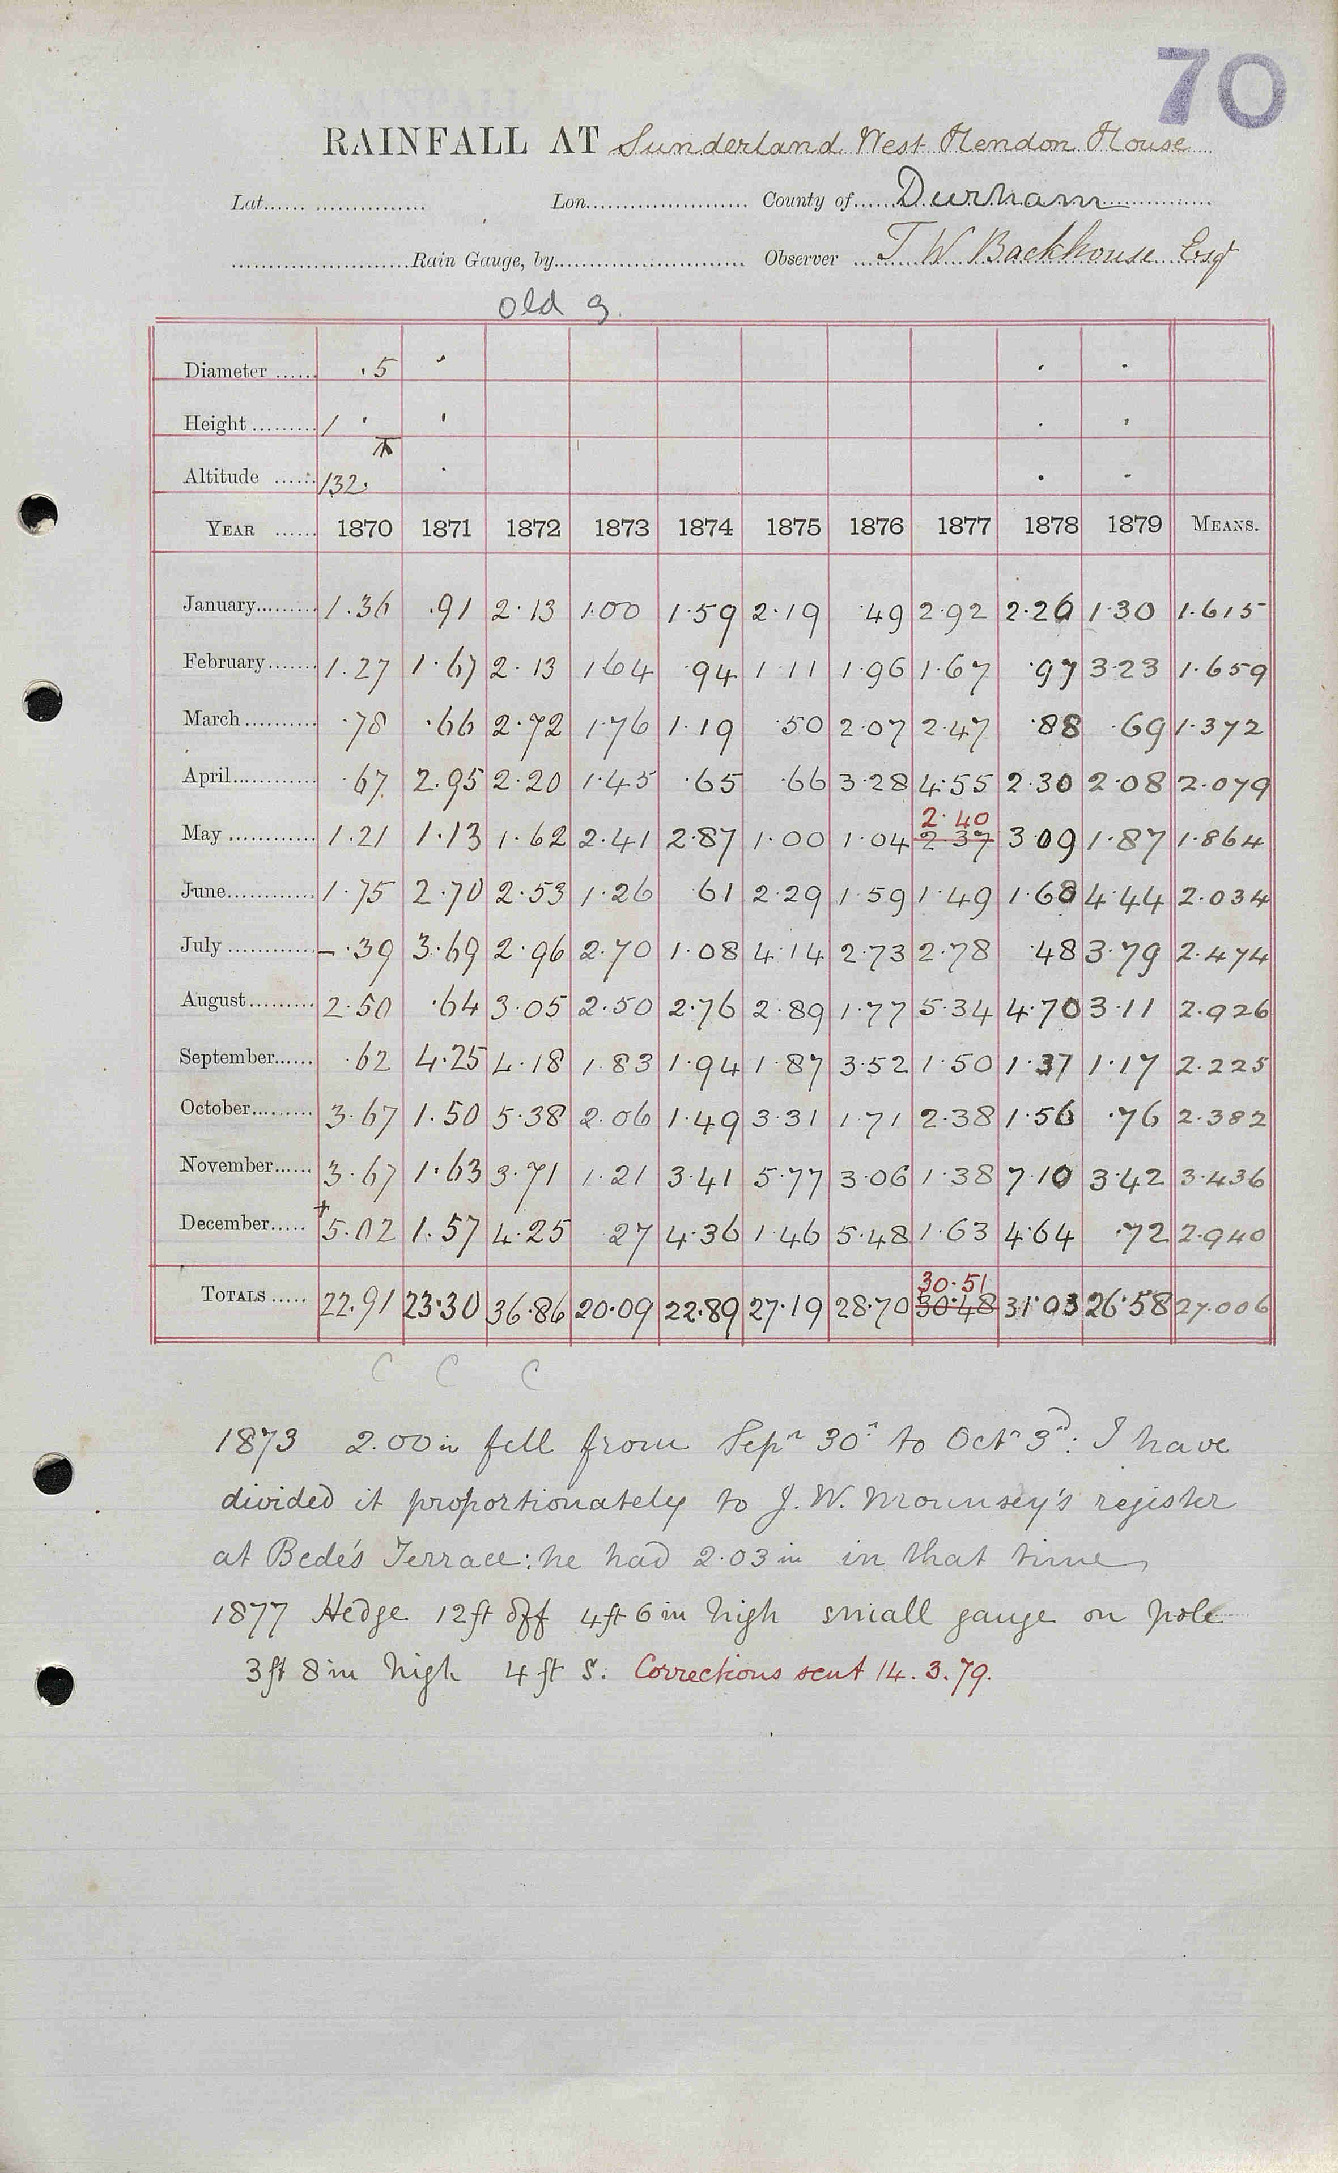 70
RAINFALL AT Sunderland West Hendon House
Lat. Lon. County of Durham
Rain Gauge, by Observer T W Backhouse Esq
Old g.
Diameter ·5
Height 1
Altitude 132·
YEAR 1870 1871 1872 1873 1874 1875 1876 1877 1878 1879 MEANS.
January 1·36 ·91 2·13 1·00 1·59 2·19 ·49 2·92 2·26 1·30 1·615
February 1·27 1·67 2·13 1·64 ·94 1·11 1·96 1·67 ·97 3·23 1·659
March ·78 ·66 2·72 1·76 1·19 ·50 2·07 2·47 ·88 ·69 1·372
April ·67 2·95 2·20 1·45 ·65 ·66 3·28 4·55 2·30 2·08 2·079
2·40
May 1·21 1·13 1·62 2·41 2·87 1·00 1·04 2·37 3·09 1·87 1·864
June 1·75 2·70 2·53 1·26 ·61 2·29 1·59 1·49 1·68 4·44 2·034
July – ·39 3·69 2·96 2·70 1·08 4·14 2·73 2·78 ·48 3·79 2·474
August 2·50 ·64 3·05 2·50 2·76 2·89 1·77 5·34 4·70 3·11 2·926
September ·62 4·25 4·18 1·83 1·94 1·87 3·52 1·50 1·37 1·17 2·225
October 3·67 1·50 5·38 2·06 1·49 3·31 1·71 2·38 1·56 ·76 2·382
November 3·67 1·63 3·71 1·21 3·41 5·77 3·06 1·38 7·10 3·42 3·436
December + 5·02 1·57 4·25 ·27 4·36 1·46 5·48 1·63 4·64 ·72 2·940
30·51
TOTALS 22·91 23·30 36·86 20·09 22·89 27·19 28·70 30·48 31·03 26·58 27·006
C C C
1873 2.00 in fell from Sepr 30th to Octr 3rd: I have
divided it proportionately to J. W. Mounsey's register
at Bede's Terrace: he had 2·03 in in that time
1877 Hedge 12ft off 4ft 6in high small gauge on pole
3ft 8in high 4ft S. Corrections sent 14.3.79.